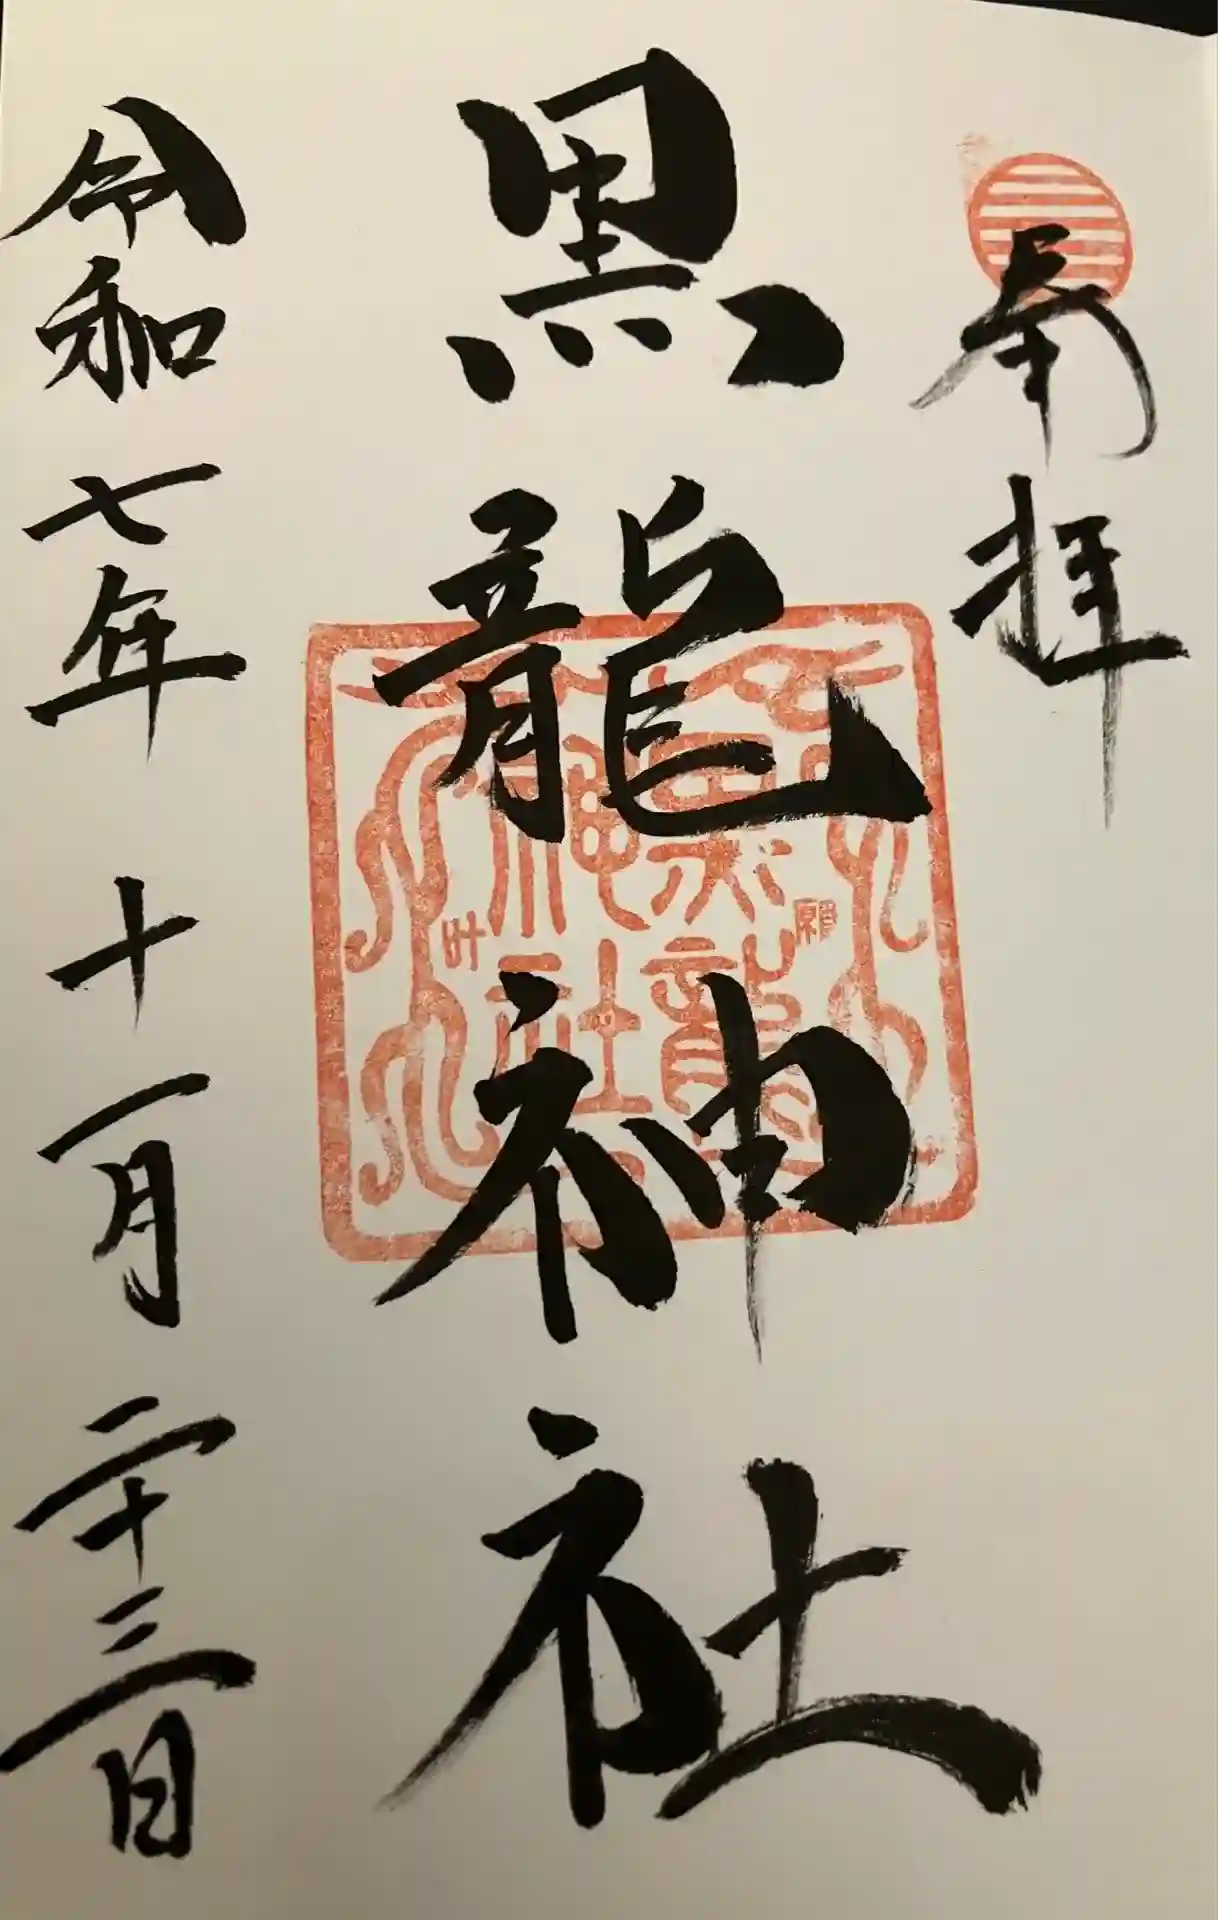 奉拝
黒龍神社
黒龍
神社
願
叶
令和七年十一月二十三日